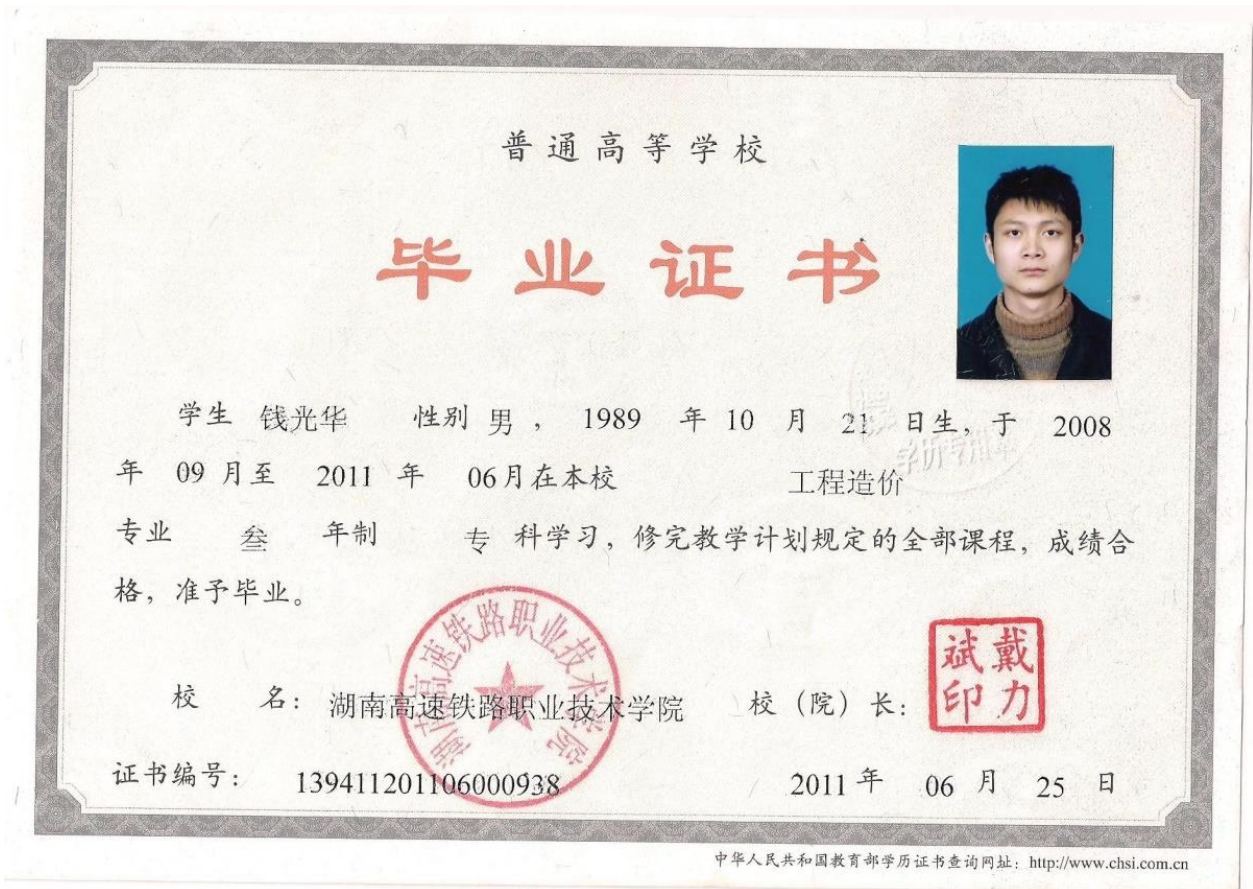 普通高等学校
毕业证书
学生 钱光华 性别 男 , 1989 年 10 月 21 日生, 于 2008
年 09 月至 2011 年 06月在本校 工程造价
专业 叁 年制 专 科学习, 修完教学计划规定的全部课程, 成绩合
格, 准予毕业。
学历专用章
湖南高速铁路职业技术学院
戴力斌印
校 名: 湖南高速铁路职业技术学院 校 (院) 长:
证书编号: 139411201106000938 2011 年 06 月 25 日
中华人民共和国教育部学历证书查询网址: http://www.chsi.com.cn